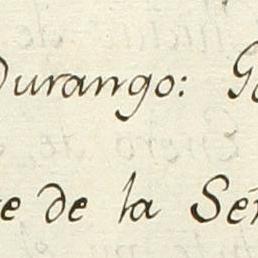 Durango: G
e de la Señ